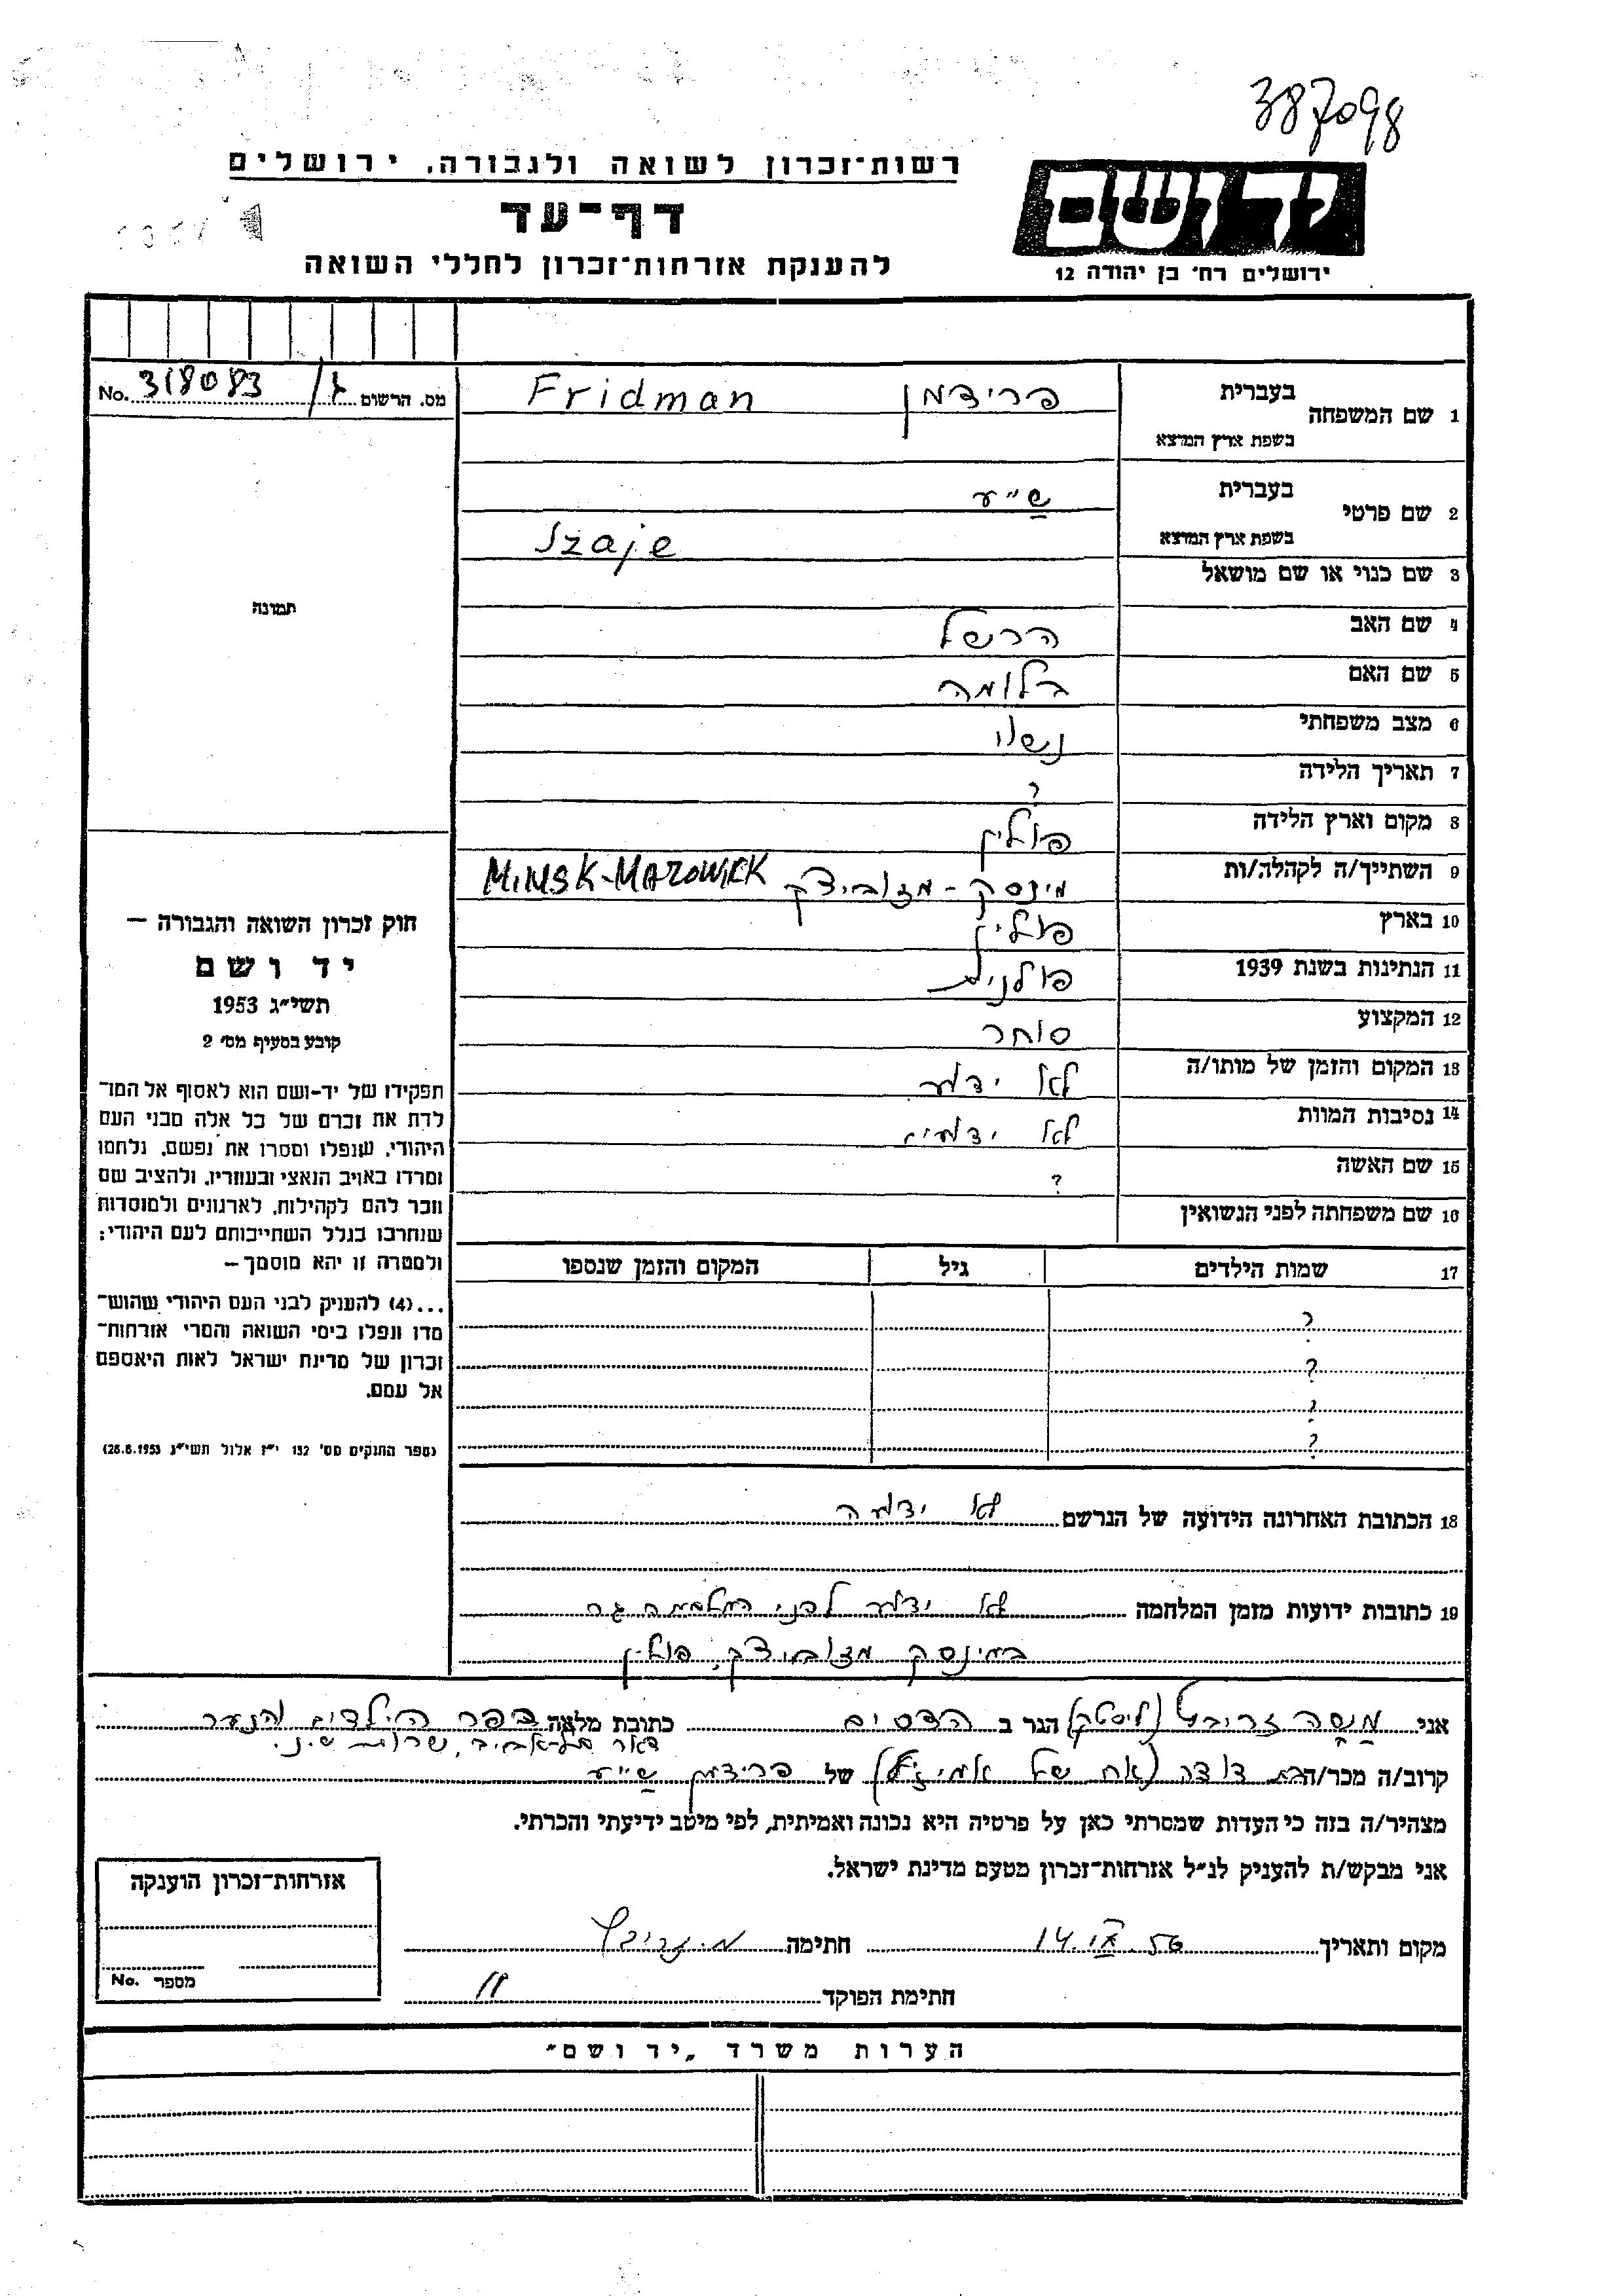 387098
רשות-זכרון לשואה ולגבורה, ירושלים
יד ושם
דף-עד
ירושלים רח' בן יהודה 12
להענקת אזרחות-זכרון לחללי השואה
1 שם המשפחה בעברית פרידמן Fridman
בשפת ארץ המוצא
מס. הרשום No. 318083
2 שם פרטי בעברית ש"ע
בשפת ארץ המוצא Szaje
3 שם כנוי או שם מושאל
תמונה
4 שם האב הרשל
5 שם האם בלומה
6 מצב משפחתי נשוי
7 תאריך הלידה ?
8 מקום וארץ הלידה פולין
9 השתייך/ה לקהלה/ות מינסק-מזוביצק MINSK-MAZOWIEK
10 בארץ פולין
11 הנתינות בשנת 1939 פולנית
12 המקצוע סוחר
13 המקום והזמן של מותו/ה לא ידוע
14 נסיבות המוות לא ידועות
15 שם האשה ?
16 שם משפחתה לפני הנשואין
17 שמות הילדים גיל המקום והזמן שנספו
?
?
?
?
חוק זכרון השואה והגבורה —
יד ושם
תשי"ג 1953
קובע בסעיף מס' 2
תפקידו של יד-ושם הוא לאסוף אל המו-
לדת את זכרם של כל אלה מבני העם
היהודי, שנפלו ומסרו את נפשם, נלחמו
ומרדו באויב הנאצי ובעוזריו, ולהציב שם
וזכר להם לקהילות, לארגונים ולמוסדות
שנחרבו בגלל השתייכותם לעם היהודי;
ולמטרה זו יהא מוסמך —
...(4) להעניק לבני העם היהודי שהוש-
מדו ונפלו בימי השואה והמרי אזרחות-
זכרון של מדינת ישראל לאות היאספם
אל עמם.
(ספר החוקים מס' 132 י"ז אלול תשי"ג 28.8.1953)
18 הכתובת האחרונה הידועה של הנרשם לא ידועה
19 כתובות ידועות מזמן המלחמה לא ידוע לפני המלחמה גר
במינסק מזוביצק, פולין
אני הגר ב הדסים כתובת מלאה כפר הילדים והנוער
דאר תל-אביב,
קרוב/ה מכר/ה בת דודה של פרידמן ש"ע
מצהיר/ה בזה כי העדות שמסרתי כאן על פרטיה היא נכונה ואמיתית, לפי מיטב ידיעתי והכרתי.
אני מבקש/ת להעניק לנ"ל אזרחות-זכרון מטעם מדינת ישראל.
מקום ותאריך 14. IX. 56 חתימה
חתימת הפוקד
אזרחות-זכרון הוענקה
מספר No.
הערות משרד "יד ושם"